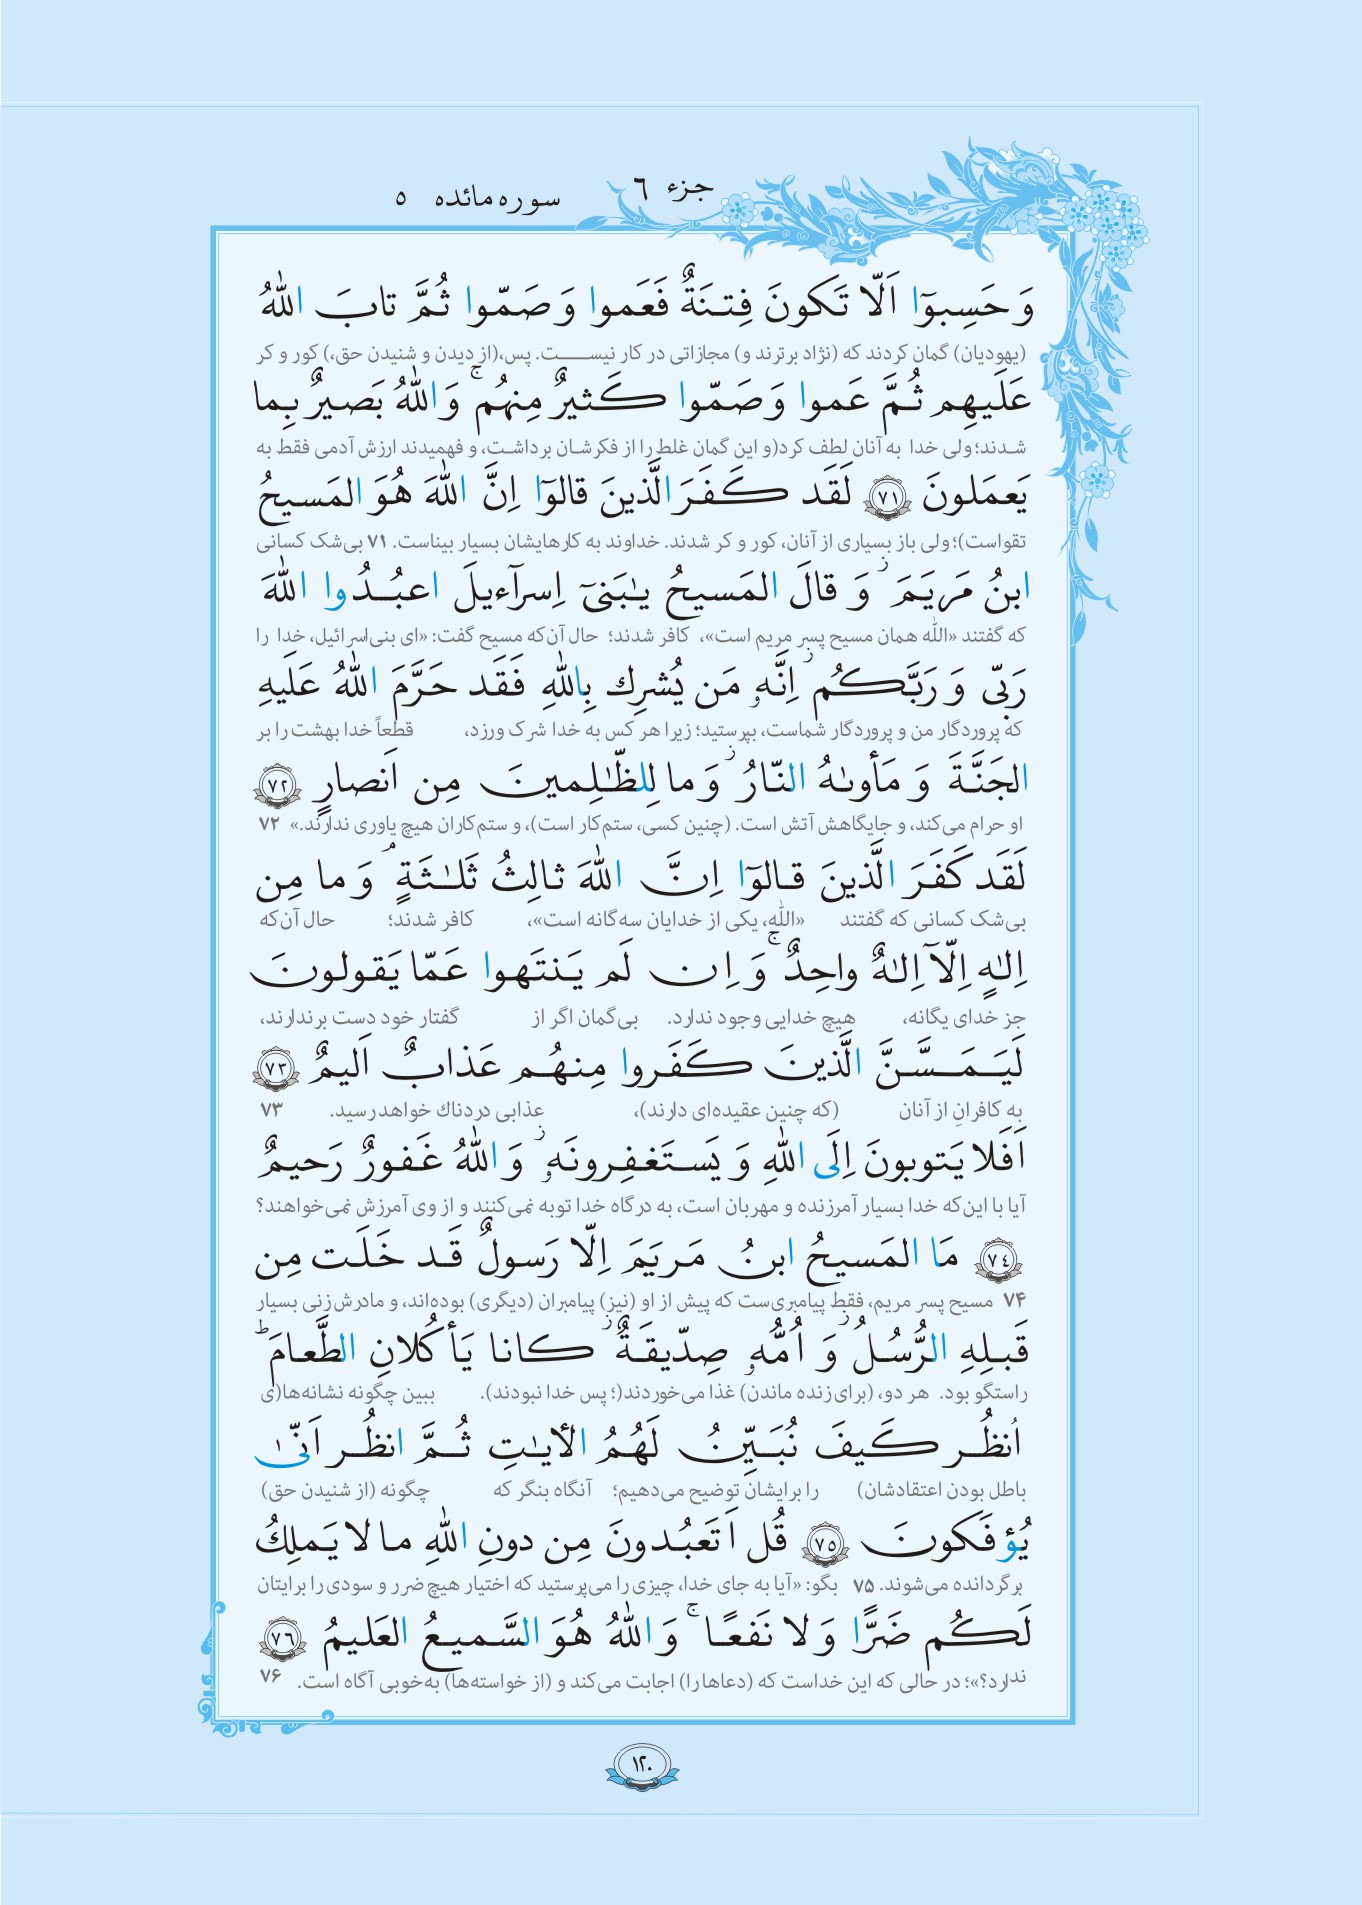 جزء ٦
سوره مائده ٥
وَ حَسِبوٓا اَلّا تَكونَ فِتنَةٌ فَعَموا وَ صَمّوا ثُمَّ تابَ اللّٰهُ
(یهودیان) گمان کردند که (نژاد برترند و) مجازاتی در کار نیست. پس،(از دیدن و شنیدن حق،) کور و کر
عَلَيهِم ثُمَّ عَموا وَ صَمّوا كَثيرٌ مِنهُم ۚ وَ اللّٰهُ بَصيرٌ بِما
شدند؛ ولی خدا به آنان لطف کرد(و این گمان غلط را از فکرشان برداشت، و فهمیدند ارزش آدمی فقط به
يَعمَلونَ ﴿٧١﴾ لَقَد كَفَرَ الَّذينَ قالوٓا اِنَّ اللّٰهَ هُوَ المَسيحُ
تقواست)؛ ولی باز بسیاری از آنان، کور و کر شدند. خداوند به کارهایشان بسیار بیناست. ۷۱ بی‌شک کسانی
ابنُ مَريَمَ ۖز وَ قالَ المَسيحُ يٰبَنىٓ اِسرآءيلَ اعبُدُوا اللّٰهَ
که گفتند «اللّٰه همان مسیح پسر مریم است»، کافر شدند؛ حال آن‌که مسیح گفت: «ای بنی‌اسرائیل، خدا را
رَبّى وَ رَبَّكُم ز اِنَّهٗ مَن يُشرِك بِاللّٰهِ فَقَد حَرَّمَ اللّٰهُ عَلَيهِ
که پروردگار من و پروردگار شماست، بپرستید؛ زیرا هر کس به خدا شرک ورزد، قطعاً خدا بهشت را بر
الجَنَّةَ وَ مَأوىٰهُ النّارُ ز وَ ما لِلظّٰلِمينَ مِن اَنصارٍ ﴿٧٢﴾
او حرام می‌کند، و جایگاهش آتش است. (چنین کسی، ستم‌کار است)، و ستم‌کاران هیچ یاوری ندارند.» ۷۲
لَقَد كَفَرَ الَّذينَ قالوٓا اِنَّ اللّٰهَ ثالِثُ ثَلٰثَةٍ ۘ وَ ما مِن
بی‌شک کسانی که گفتند «اللّٰه، یکی از خدایان سه‌گانه است»، کافر شدند؛ حال آن‌که
اِلٰهٍ اِلّآ اِلٰهٌ واحِدٌ ۚ وَ اِن لَم يَنتَهوا عَمّا يَقولونَ
جز خدای یگانه، هیچ خدایی وجود ندارد. بی‌گمان اگر از گفتار خود دست برندارند،
لَيَمَسَّنَّ الَّذينَ كَفَروا مِنهُم عَذابٌ اَليمٌ ﴿٧٣﴾
به کافرانِ از آنان (که چنین عقیده‌ای دارند)، عذابی دردناك خواهد رسید. ۷۳
اَفَلا يَتوبونَ اِلَى اللّٰهِ وَ يَستَغفِرونَهٗ ز وَ اللّٰهُ غَفورٌ رَحيمٌ
آیا با این‌که خدا بسیار آمرزنده و مهربان است، به درگاه خدا توبه نمی‌کنند و از وی آمرزش نمی‌خواهند؟
﴿٧٤﴾ مَا المَسيحُ ابنُ مَريَمَ اِلّا رَسولٌ قَد خَلَت مِن
۷۴ مسیح پسر مریم، فقط پیامبری‌ست که پیش از او (نیز) پیامبران (دیگری) بوده‌اند، و مادرش زنی بسیار
قَبلِهِ الرُّسُلُ ز وَ اُمُّهٗ صِدّيقَةٌ ز كانا يَأكُلانِ الطَّعامَ ط
راستگو بود. هر دو، (برای زنده ماندن) غذا می‌خوردند(؛ پس خدا نبودند). ببین چگونه نشانه‌ها(ی
اُنظُر كَيفَ نُبَيِّنُ لَهُمُ الأيٰتِ ثُمَّ انظُر اَنّىٰ
باطل بودن اعتقادشان) را برایشان توضیح می‌دهیم؛ آنگاه بنگر که چگونه (از شنیدن حق)
يُؤفَكونَ ﴿٧٥﴾ قُل اَتَعبُدونَ مِن دونِ اللّٰهِ ما لا يَملِكُ
برگردانده می‌شوند. ۷۵ بگو: «آیا به جای خدا، چیزی را می‌پرستید که اختیار هیچ ضرر و سودی را برایتان
لَكُم ضَرًّا وَ لا نَفعًا ۚ وَ اللّٰهُ هُوَ السَّميعُ العَليمُ ﴿٧٦﴾
ندارد؟»؛ در حالی که این خداست که (دعاها را) اجابت می‌کند و (از خواسته‌ها) به‌خوبی آگاه است. ۷۶
١٢٠